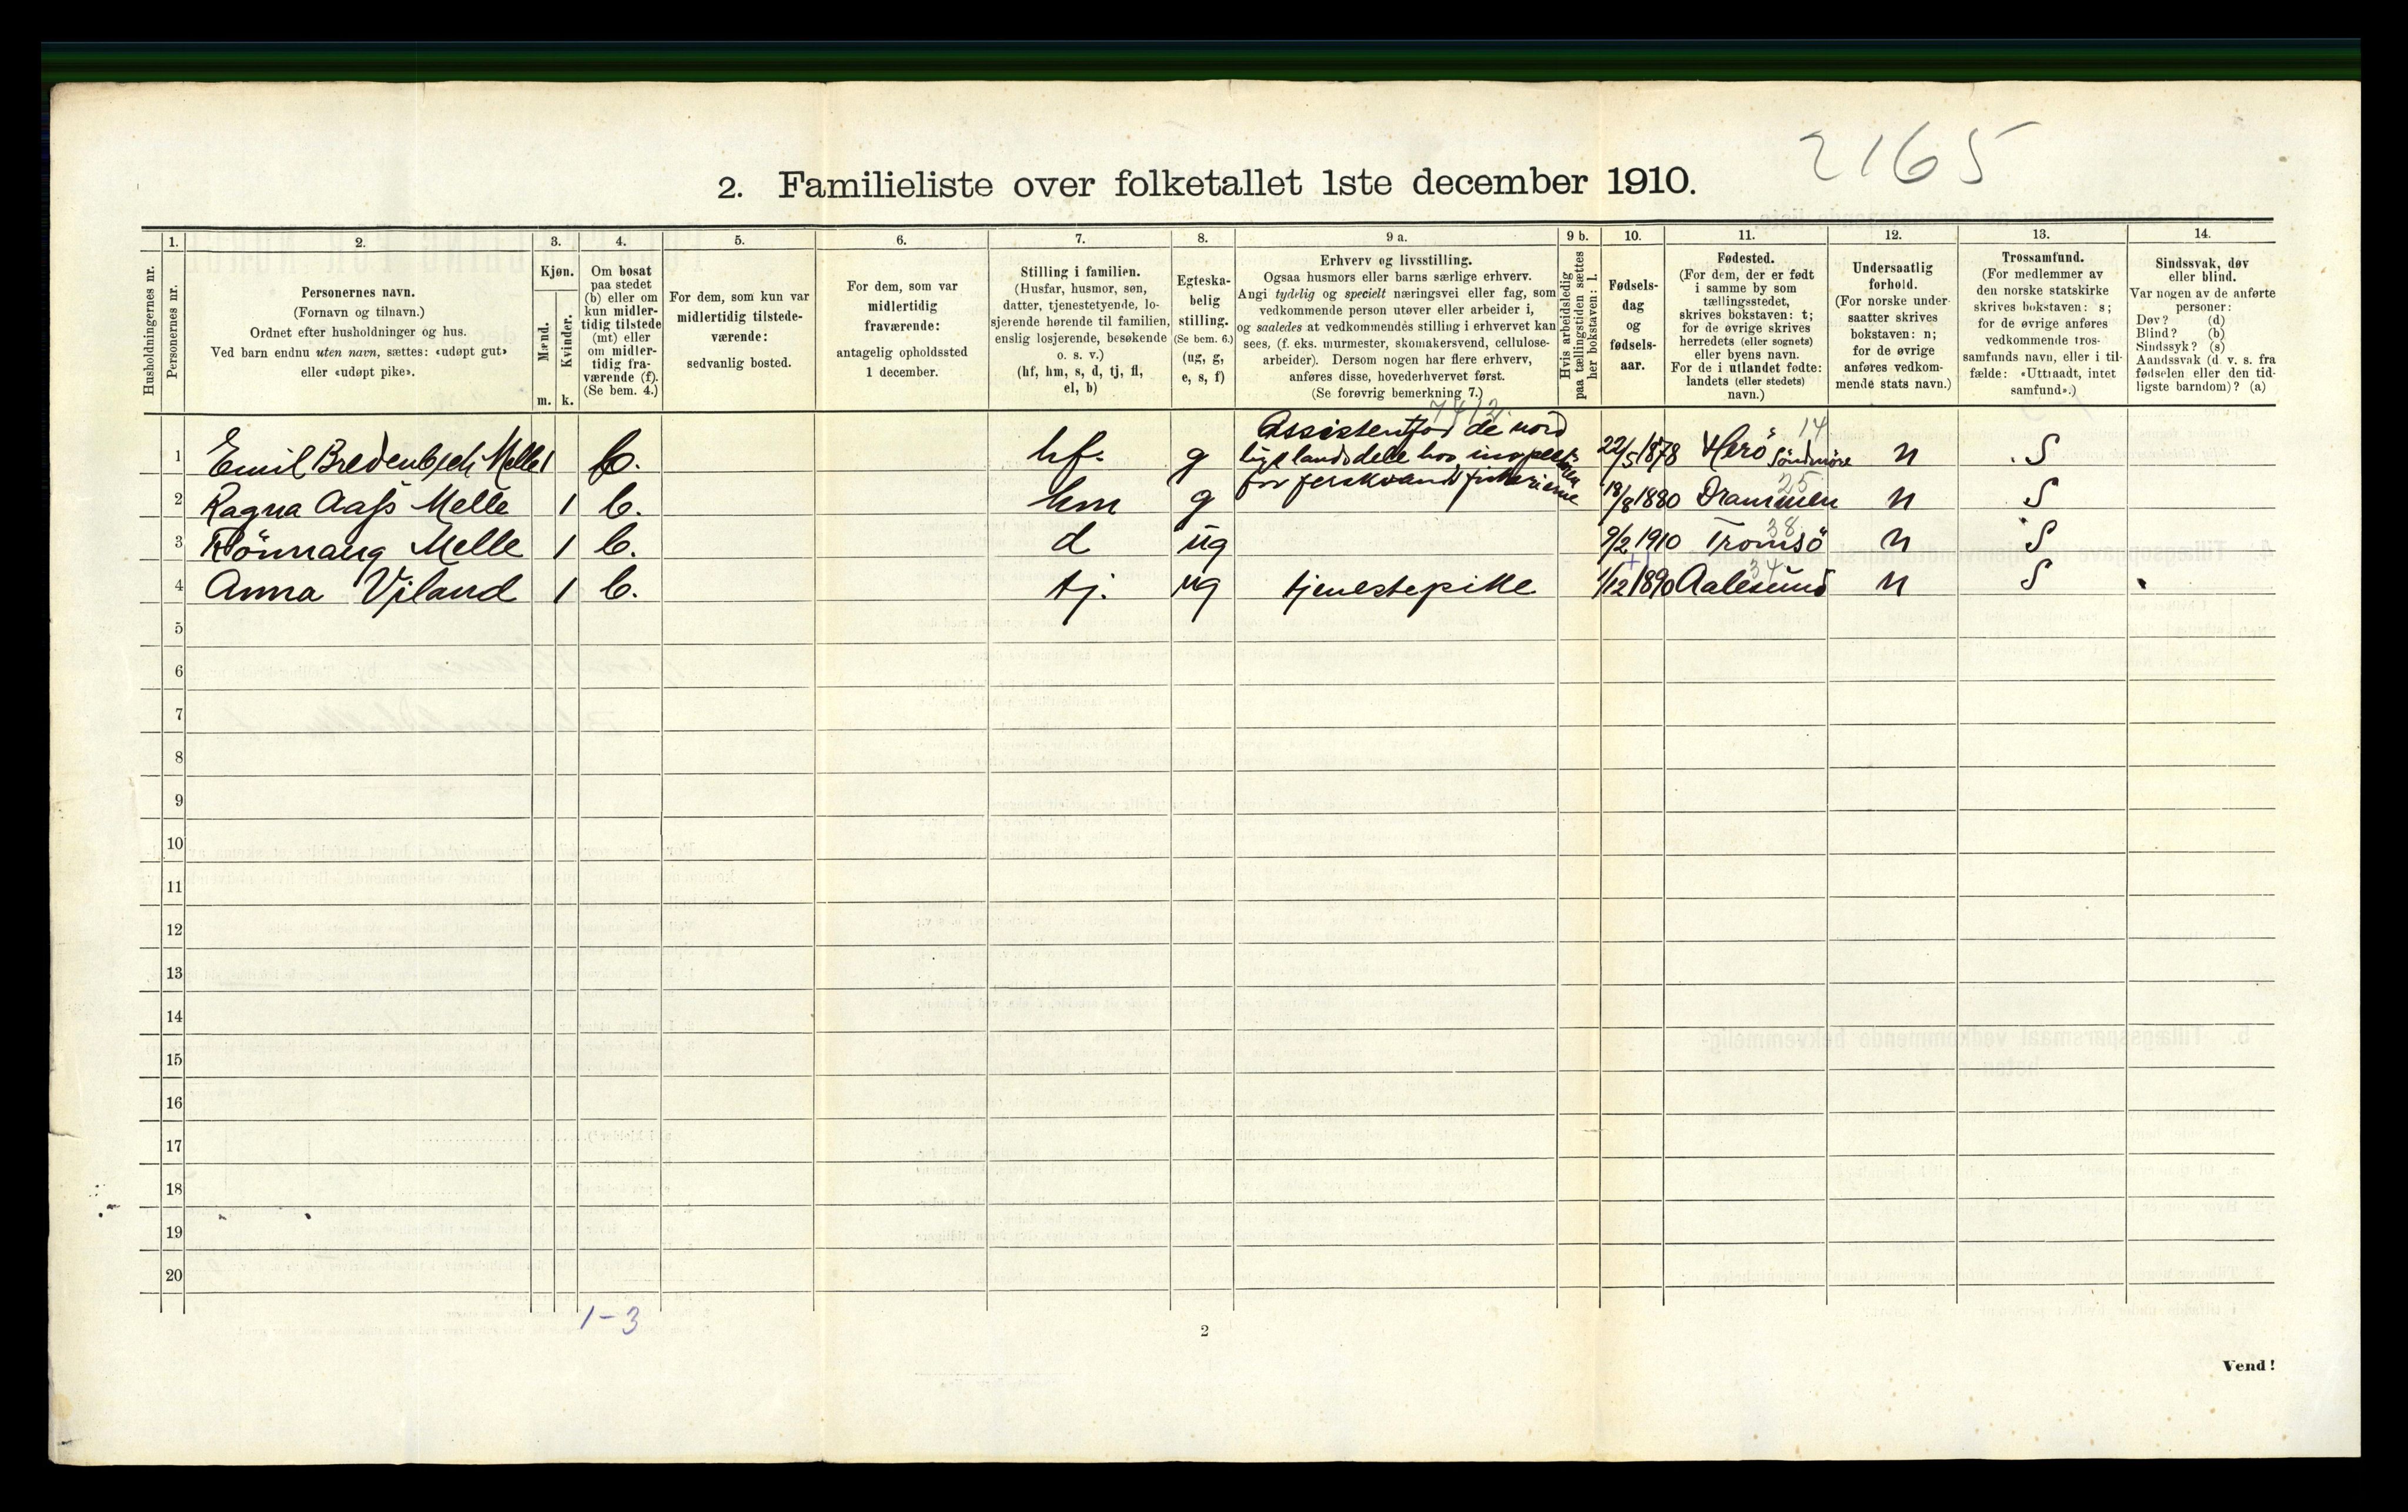 2165
2. Familieliste over folketallet 1ste december 1910.
Husholdningernes nr.
1.
Personernes nr.
2.
Personernes navn.
(Fornavn og tilnavn.)
Ordnet efter husholdninger og hus.
Ved barn endnu uten navn, sættes: «udøpt gut»
eller «udøpt pike».
3.
Kjøn.
Mænd.
Kvinder.
m. k.
4.
Om bosat
paa stedet
(b) eller om
kun midler-
tidig tilstede
(mt) eller
om midler-
tidig fra-
værende (f).
(Se bem. 4.)
5.
For dem, som kun var
midlertidig tilstede-
værende:
sedvanlig bosted.
6.
For dem, som var
midlertidig
fraværende:
antagelig opholdssted
1 december.
7.
Stilling i familien.
(Husfar, husmor, søn,
datter, tjenestetyende, lo-
sjerende hørende til familien,
enslig losjerende, besøkende
o. s. v.)
(hf, hm, s, d, tj, fl,
el, b)
8.
Egteska-
belig
stilling.
(Se bem. 6.)
(ug, g,
e, s, f)
9 a.
Erhverv og livsstilling.
Ogsaa husmors eller barns særlige erhverv.
Angi tydelig og specielt næringsvei eller fag, som
vedkommende person utøver eller arbeider i,
og saaledes at vedkommendes stilling i erhvervet kan
sees, (f. eks. murmester, skomakersvend, cellulose-
arbeider). Dersom nogen har flere erhverv,
anføres disse, hovederhvervet først.
(Se forøvrig bemerkning 7.)
9 b.
Hvis arbeidsledig
paa tællingstiden sættes
her bokstaven: l.
10.
Fødsels-
dag
og
fødsels-
aar.
11.
Fødested.
(For dem, der er født
i samme by som
tællingsstedet,
skrives bokstaven: t;
for de øvrige skrives
herredets (eller sognets)
eller byens navn.
For de i utlandet fødte:
landets (eller stedets)
navn.)
12.
Undersaatlig
forhold.
(For norske under-
saatter skrives
bokstaven: n;
for de øvrige
anføres vedkom-
mende stats navn.)
13.
Trossamfund.
(For medlemmer av
den norske statskirke
skrives bokstaven: s;
for de øvrige anføres
vedkommende tros-
samfunds navn, eller i til-
fælde: «Uttraadt, intet
samfund».)
14.
Sindssvak, døv
eller blind.
Var nogen av de anførte
personer:
Døv? (d)
Blind? (b)
Sindssyk? (s)
Aandssvak (d. v. s. fra
fødselen eller den tid-
ligste barndom)? (a)
1 Emil Melle 1 b. hf. g Assistent for de nord
lige landsdele hos inspektøren
for ferskvandsfiskerierne 22/5 1878 Herö Söndmöre 14 n S
2 Ragna Aass Melle 1 b. hm g 18/8 1880 Drammen 25 n S
3 Rönnaug Melle 1 b. d ug 9/2 1910 Tromsö 38 n S
4 Anna Viland 1 b. tj. ug tjenestepike 1/12 1890 Aalesund 34 n S
5
6
7
8
9
10
11
12
13
14
15
16
17
18
19
20
1-3
2
Vend!